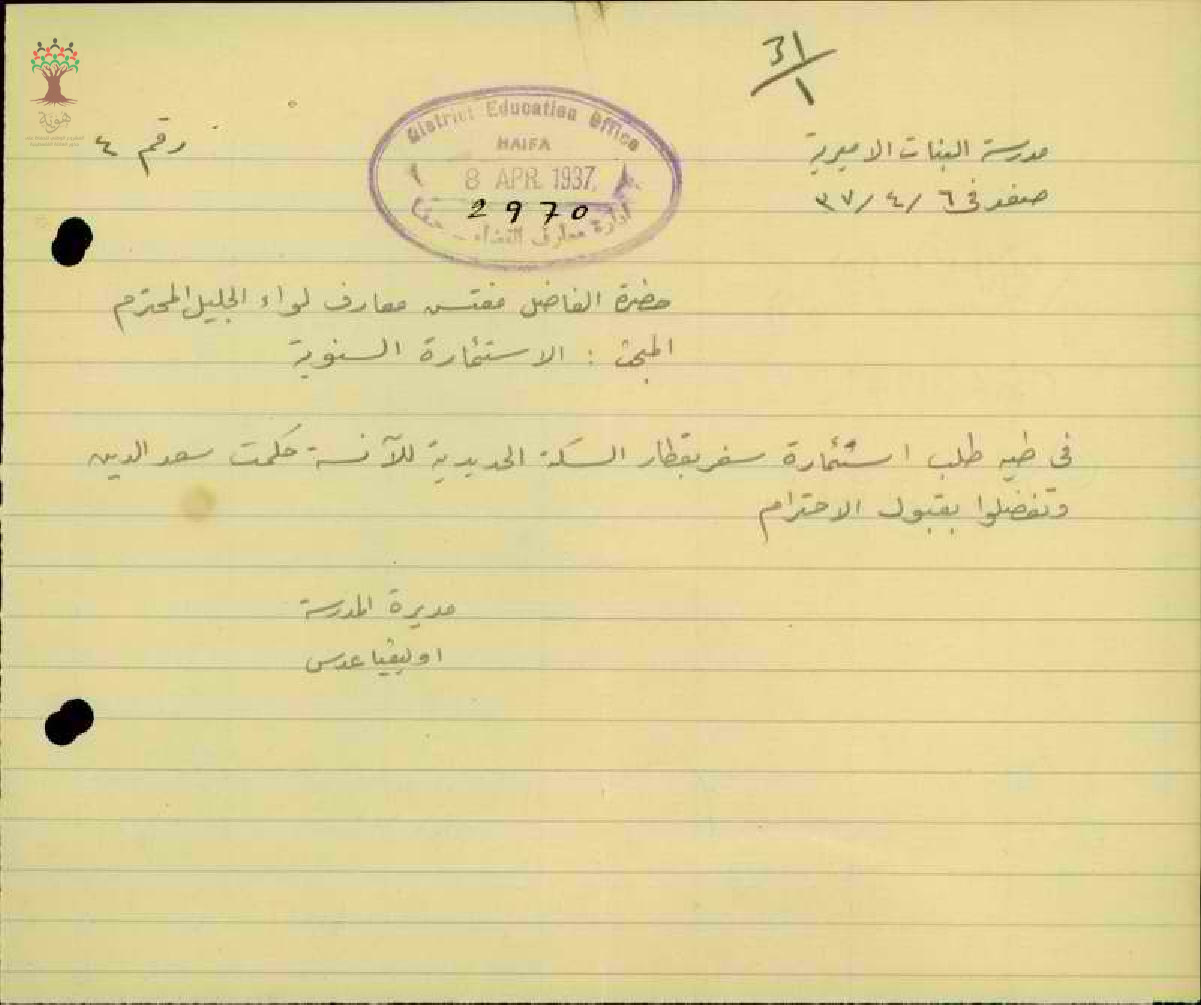 31/1
مدرسة البنات الاميرية
صفد في ٦/٤/٣٧
رقم ٤
District Education Office
HAIFA
8 APR. 1937
2970
ادارة معارف القضاء - حيفا
حضرة الفاضل مفتش معارف لواء الجليل المحترم
المبحث : الاستئمارة السنوية
في طيه طلب استئمارة سفر بقطار السكة الحديدية للآنسة حكمت سعد الدين
وتفضلوا بقبول الاحترام
مديرة المدرسة
اوليفيا عدس
هوية